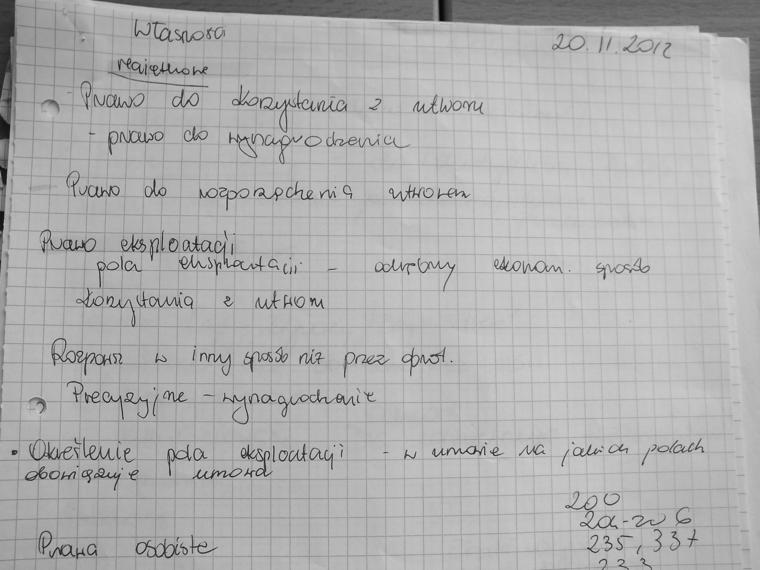 Własność
20.11.2012
majątkowe
- Prawo do korzystania z utworu
- prawo do wynagrodzenia
Prawo do rozporządzenia utworem
Prawo eksploatacji
pola eksploatacji - odrębny ekonom. sposób
korzystania z utworu
w inny sposób niż przez
Precyzyjne - wynagrodzenie
• Określenie pola eksploatacji - w umowie na jakich polach
obowiązuje umowa
Prawa osobiste
200
235, 337
233